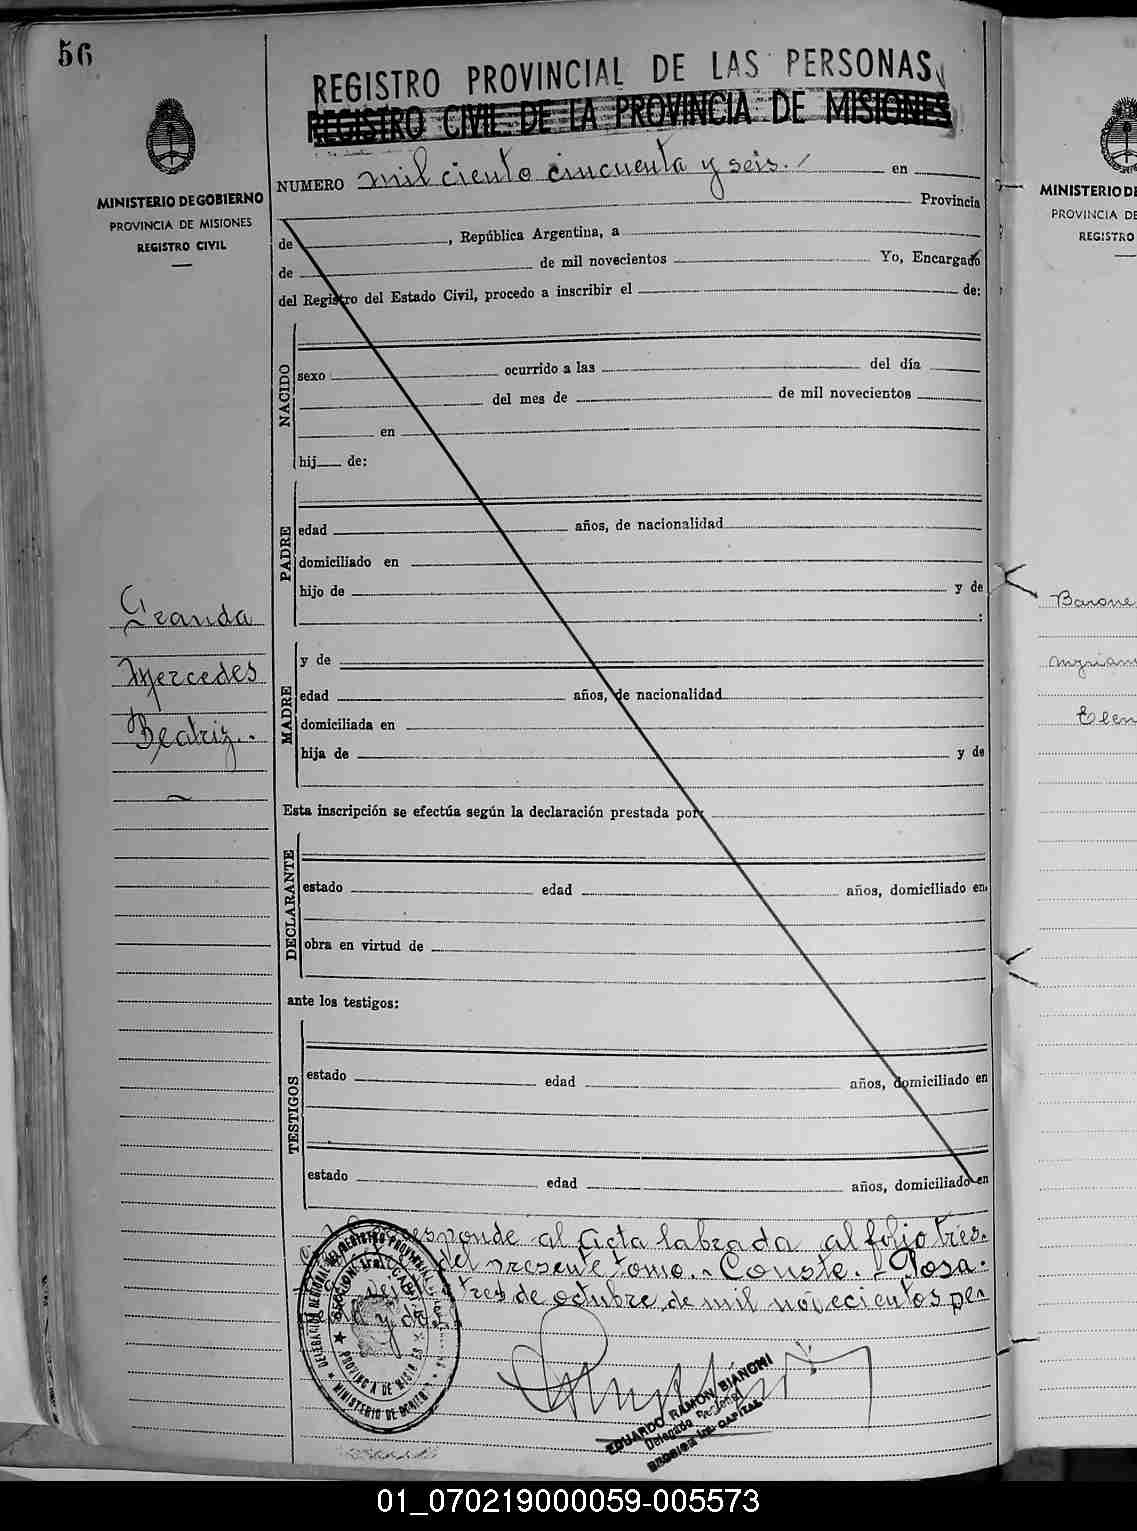 56
REGISTRO PROVINCIAL DE LAS PERSONAS
REGISTRO CIVIL DE LA PROVINCIA DE MISIONES
MINISTERIO DE GOBIERNO
PROVINCIA DE MISIONES
REGISTRO CIVIL
NUMERO mil ciento cincuenta y seis. en
Provincia
de , República Argentina, a
de de mil novecientos Yo, Encargado
del Registro del Estado Civil, procedo a inscribir el de:
NACIDO
sexo ocurrido a las del día
del mes de de mil novecientos
en
hij de:
PADRE
edad años, de nacionalidad
domiciliado en
hijo de y de
:
Granda
Mercedes
Beatriz.
MADRE
y de
edad años, de nacionalidad
domiciliada en
hija de y de
Esta inscripción se efectúa según la declaración prestada por:
DECLARANTE
estado edad años, domiciliado en
obra en virtud de
ante los testigos:
TESTIGOS
estado edad años, domiciliado en
estado edad años, domiciliado en
al Acta labrada al folio tres.
del presente tomo.- Conste.- Posa.
tres de octubre de mil novecientos
y dos
PROVINCIA DE MISIONES
MINISTERIO DE GOBIERNO
EDUARDO RAMÓN BIANCHI
Delegado Regional
MINISTERIO DE
PROVINCIA DE
REGISTRO
Barone
Elen
01_070219000059-005573